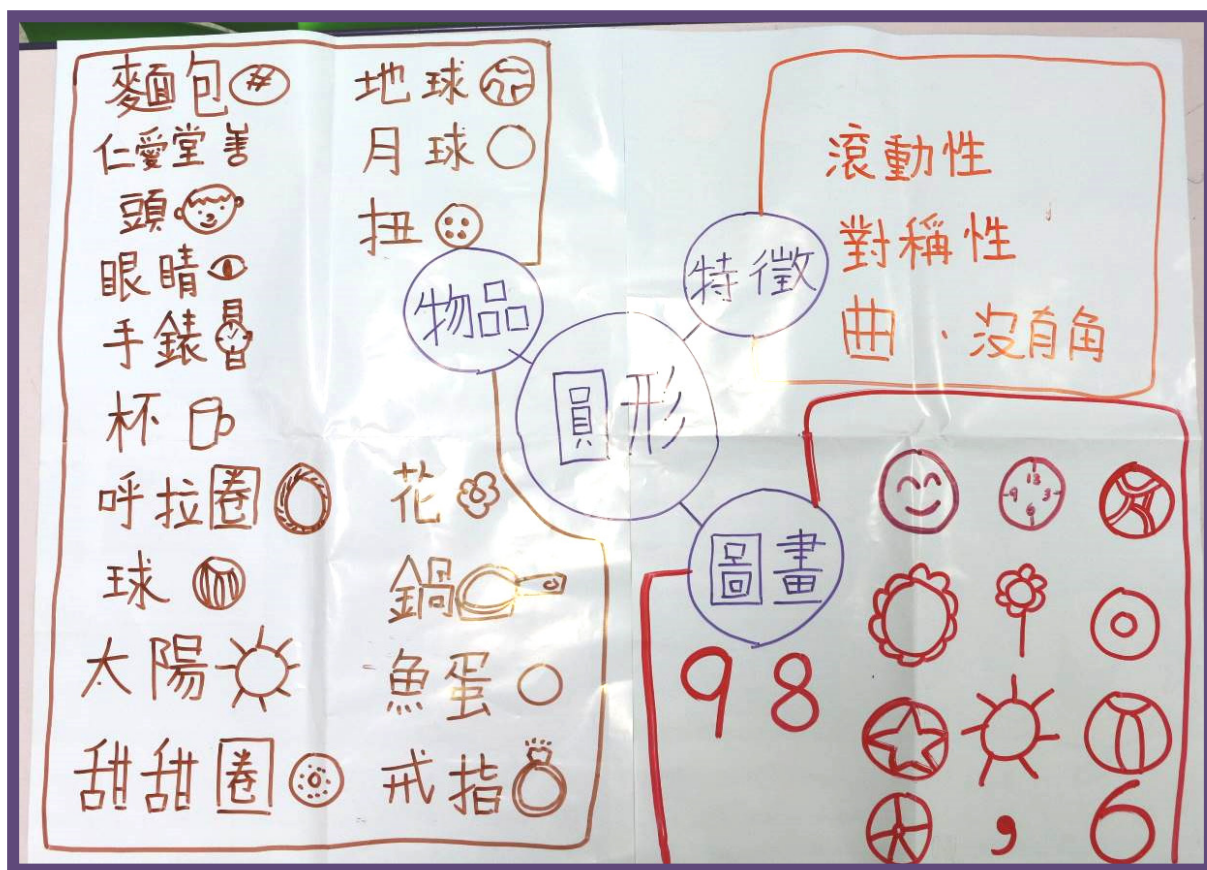 麵包
仁愛堂善
頭
眼睛
手錶
杯
呼拉圈
球
太陽
甜甜圈
地球
月球
扭
花
鍋
魚蛋
戒指
物品
圓形
特徵
滾動性
對稱性
曲、沒有角
圖畫
13
9 3
6
9 8
,
6